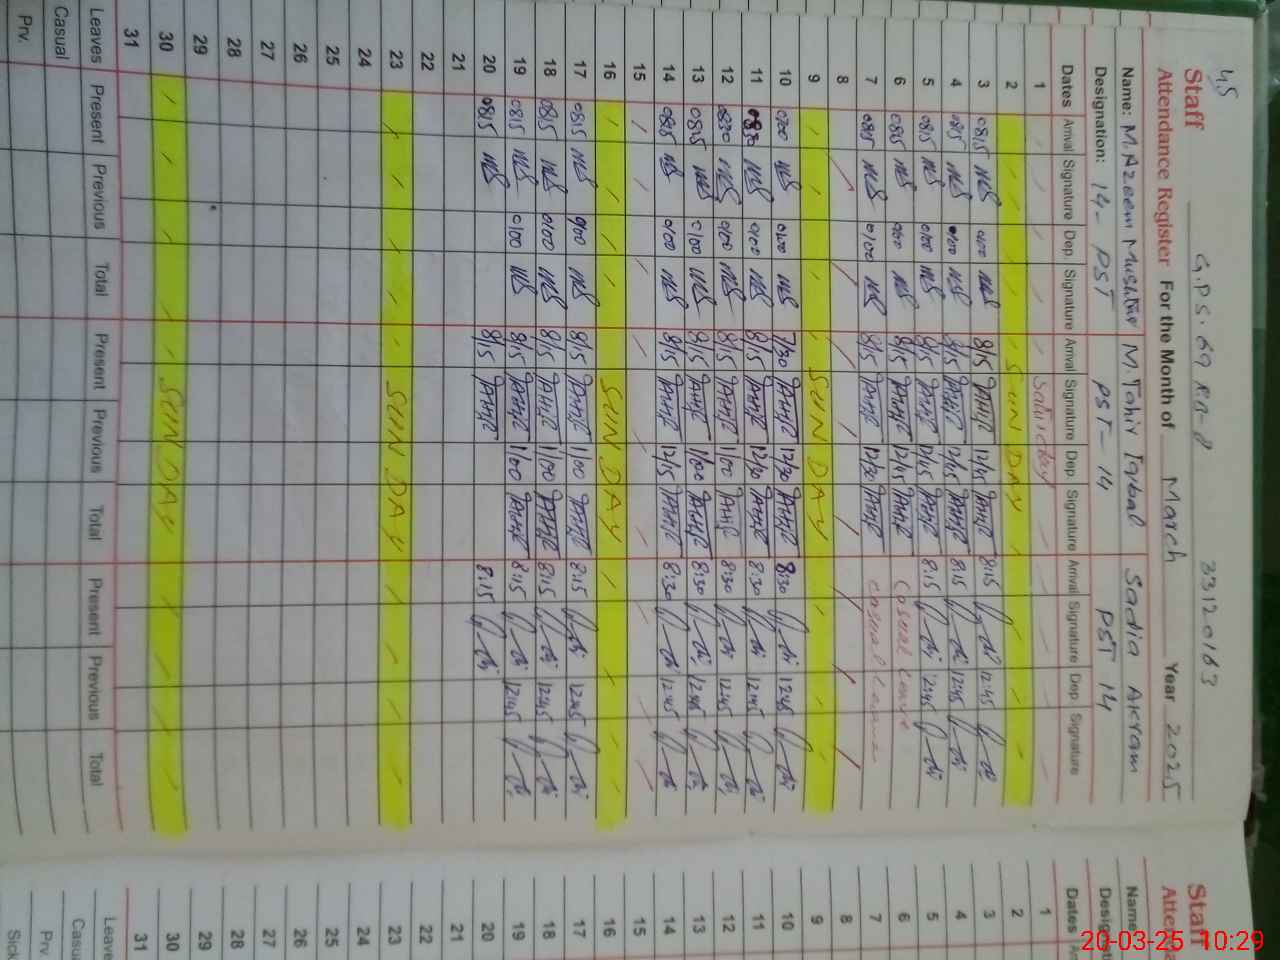 45
Staff
G.P.S. 69 R.B-P
33120163
Attendance Register For the Month of March Year 2025
Name: M. Azeem Mushtaq M. Tahir Iqbal Sadia Akram
Designation: 14- PST PST-14 PST 14
Dates Arrival Signature Dep. Signature Arrival Signature Dep. Signature Arrival Signature Dep. Signature
1 Saturday
2 SUNDAY
3 0815 0100 8/15 12/45 8:15 12:45
4 0815 0100 8/15 12/45 8:15 12:45
5 0815 0100 8/15 12/45 8:15 12:45
6 0815 0100 8/15 12/45 Casual Leave
7 0815 0100 8/15 12/30 Casual Leave
8
9 SUNDAY
10 0700 0100 7/30 12/30 8:30 12:45
11 0830 0100 8/15 12/30 8:30 12:45
12 0830 0100 8/15 1/00 8:30 12:45
13 0815 0100 8/15 1/00 8:30 12:45
14 0815 0100 8/15 12/15 8:30 12:45
15
16 SUNDAY
17 0815 0100 8/15 1/00 8:15 12:45
18 0815 0100 8/15 1/00 8:15 12:45
19 0815 0100 8/15 1/00 8:15 12:45
20 0815 8/15 8:15
21
22
23 SUNDAY
24
25
26
27
28
29
30 SUNDAY
31
Leaves Present Previous Total Present Previous Total Present Previous Total
Casual
Prv.
Staff
Name
Dates
1
2
3
4
5
6
7
8
9
10
11
12
13
14
15
16
17
18
19
20
21
22
23
24
25
26
27
28
29
30
31
Prv.
Sick
20-03-25 10:29